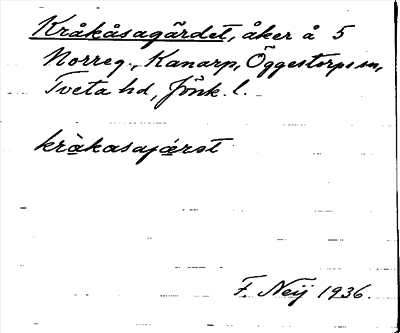 Kråkåsagärdet, åker å 5
Norreg., Kanarp, Öggestorps sn,
Tveta hd, Jönk. l.
kràkasajǽrst
F. Neij 1936.